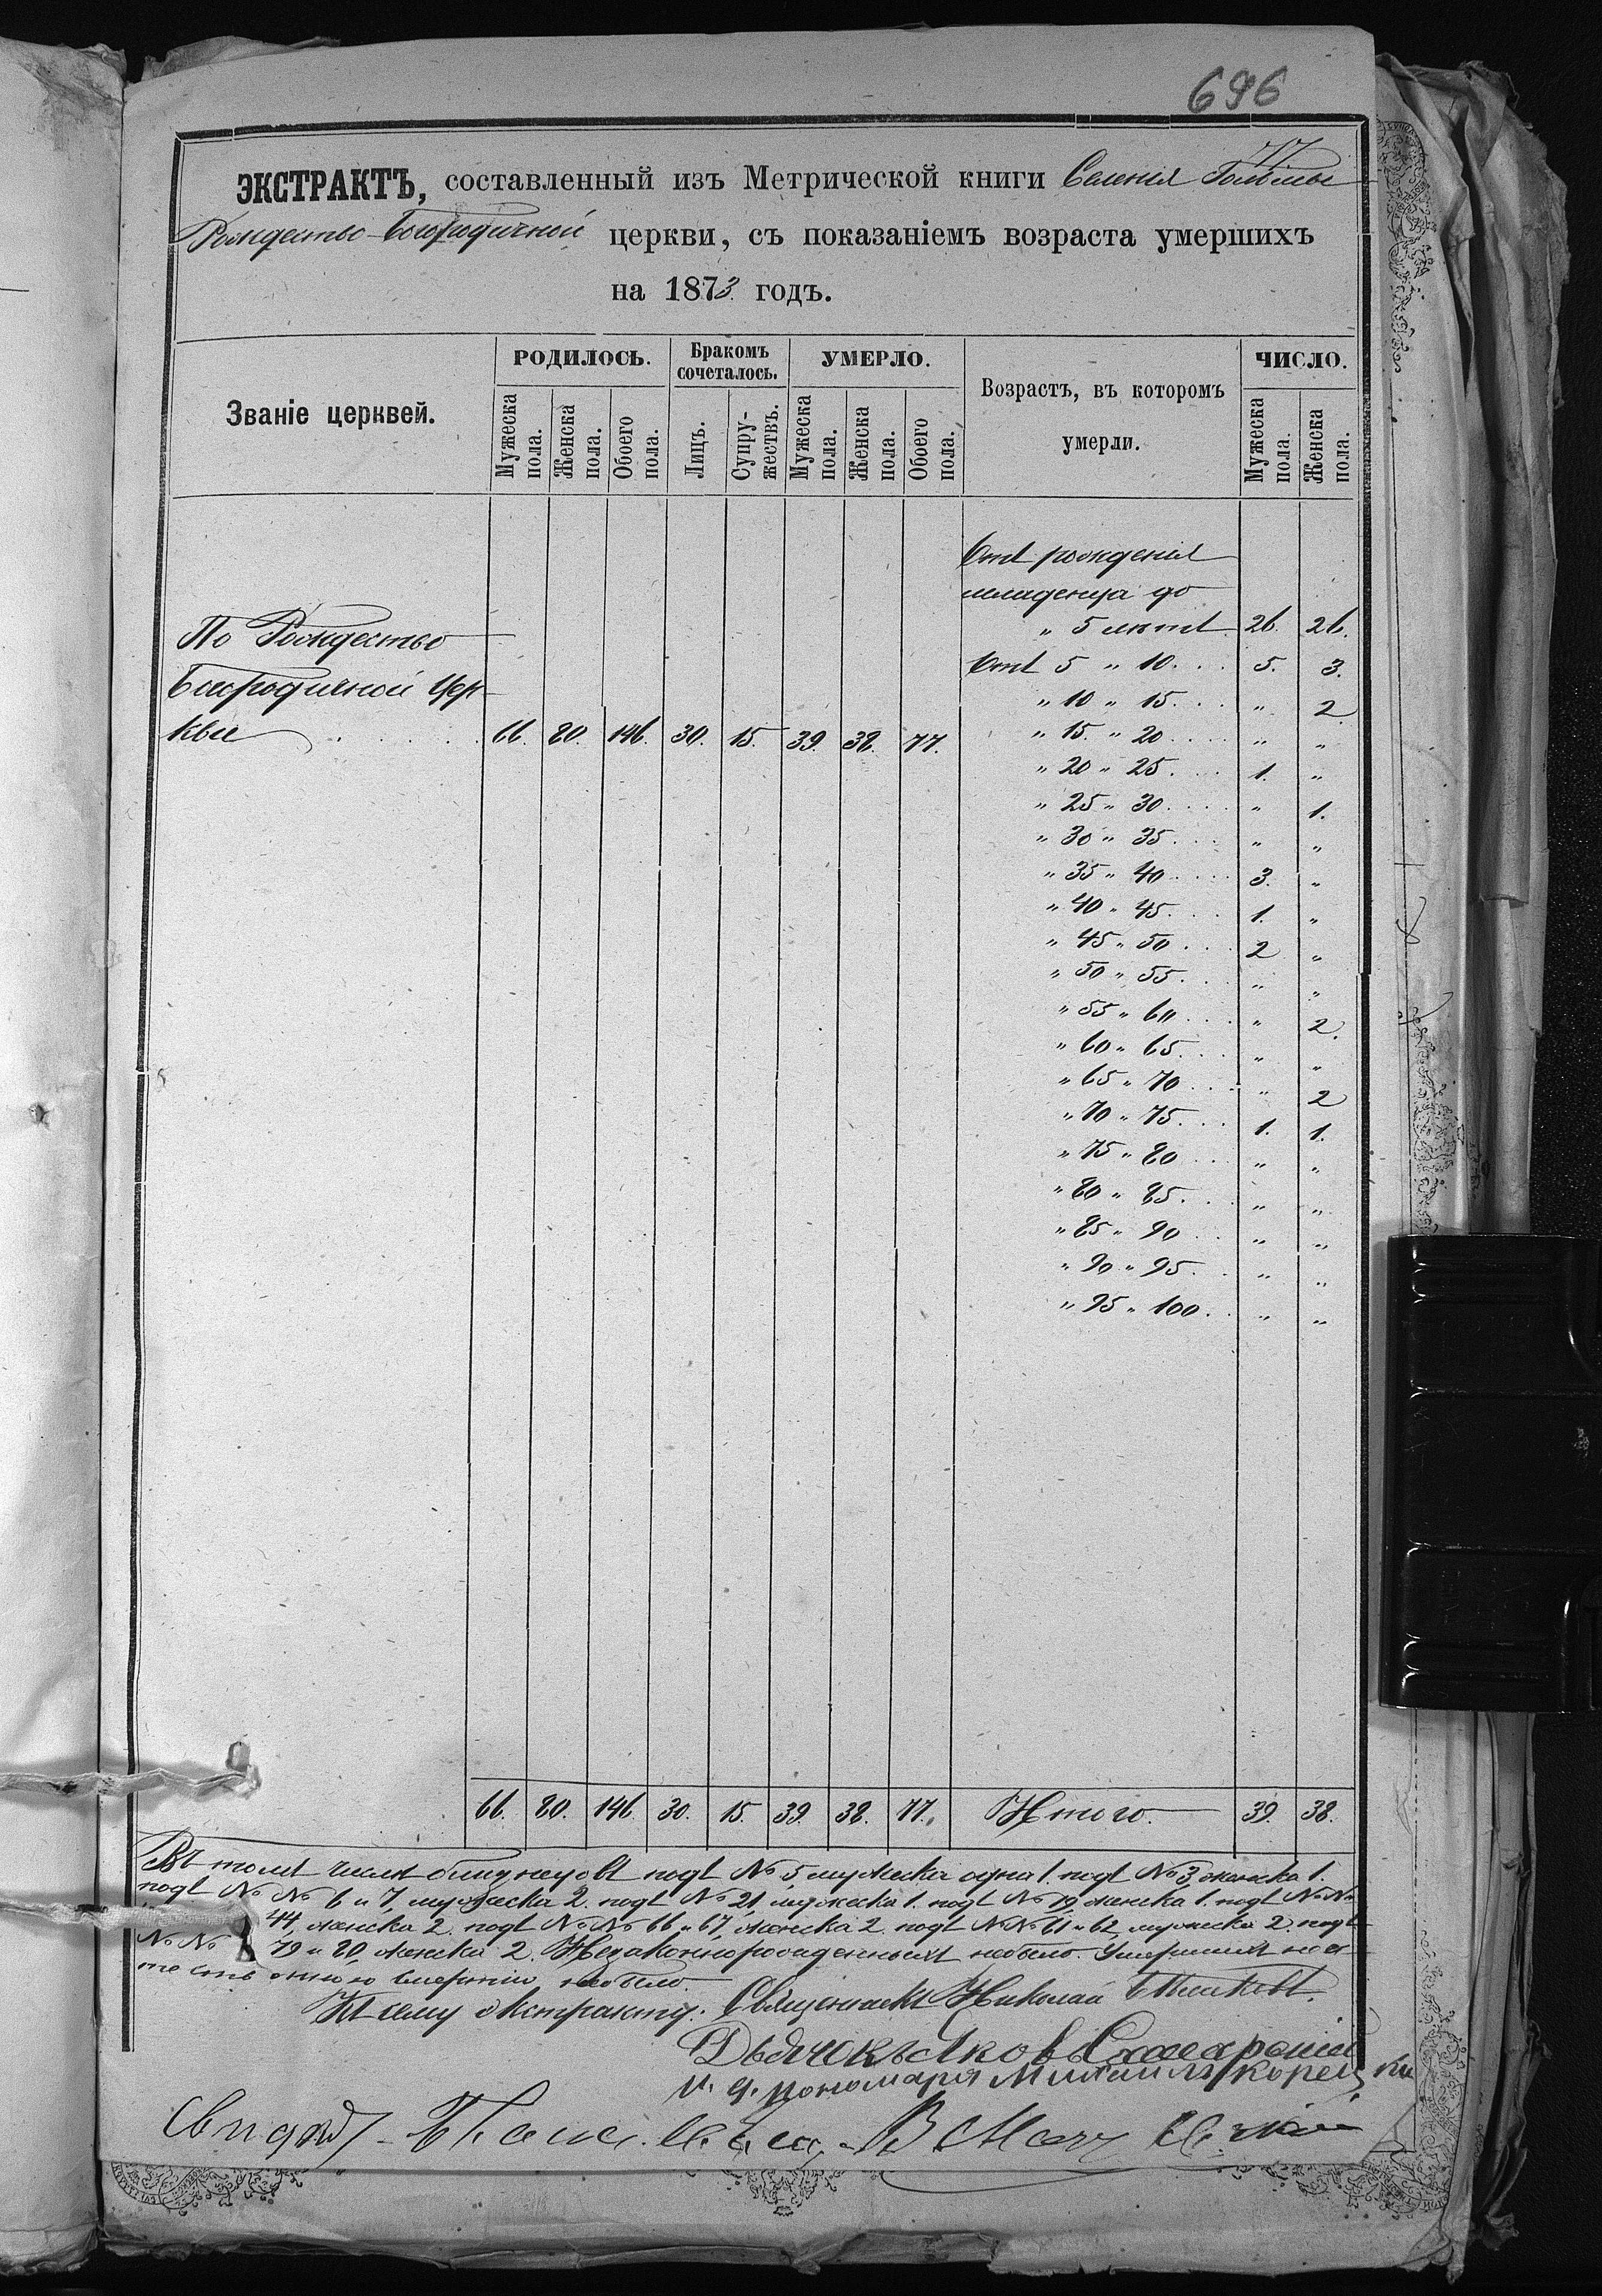 696
77
ЭКСТРАКТЪ, составленный изъ Метрической книги Селенія
Рождество-Богородичной церкви, съ показаніемъ возраста умершихъ
на 1873 годъ.
Званіе церквей. РОДИЛОСЬ. Бракомъ сочеталось. УМЕРЛО. Возрастъ, въ которомъ умерли. ЧИСЛО.
Мужеска пола. Женска пола. Обоего пола. Лицъ. Супружествъ. Мужеска пола. Женска пола. Обоего пола. Мужеска пола. Женска пола.
Отъ рожденія
младенца до
По Рождество „ 5 лѣтъ. 26. 26.
Богородичной Цер Отъ 5 „ 10. . . 5. 3.
„ 10 „ 15. . . „ 2
кви . . . . . 66. 80. 146. 30. 15. 39. 38. 77. „ 15. „ 20 . . . . „ „
„ 20 „ 25. . . . 1. „
„ 25 „ 30. . . . „ 1.
„ 30 „ 35. . . . „ „
„ 35 „ 40. . . . . 3. „
„ 40 „ 45. . . . 1. „
„ 45 „ 50. . . . 2 „
„ 50 „ 55. . . . „ „
„ 55 „ 60. . . . „ 2.
„ 60 „ 65. . . . „ „
„ 65 „ 70. . . „ 2
„ 70 „ 75. . . . 1. 1.
„ 75 „ 80. . . . „ „
„ 80 „ 85. . . „ „
„ 85 „ 90. . . „ „
„ 90 „ 95. . „ „
„ 95 „ 100. . „ „
66. 80. 146. 30. 15. 39. 38. 77. Итого. 39. 38.
Въ томъ числѣ близнецовъ подъ № 5 мужеска одна 1. подъ № 3, женска 1.
подъ № № 6 и 7, мужеска 2. подъ № 21, мужеска 1. подъ № 19, женска 1. подъ № №
44, женска 2. подъ № № 66 и 67, женска 2. подъ № № 61 и 62, мужеска 2 подъ
№ № 79 и 80, женска 2. Незаконнорожденныхъ небыло. Умершихъ не е
стественною смертію небыло.
Къ сему экстракту: Священникъ Николай
Дьячекъ Яковъ
И. д. пономаря Михаилъ Корец кій